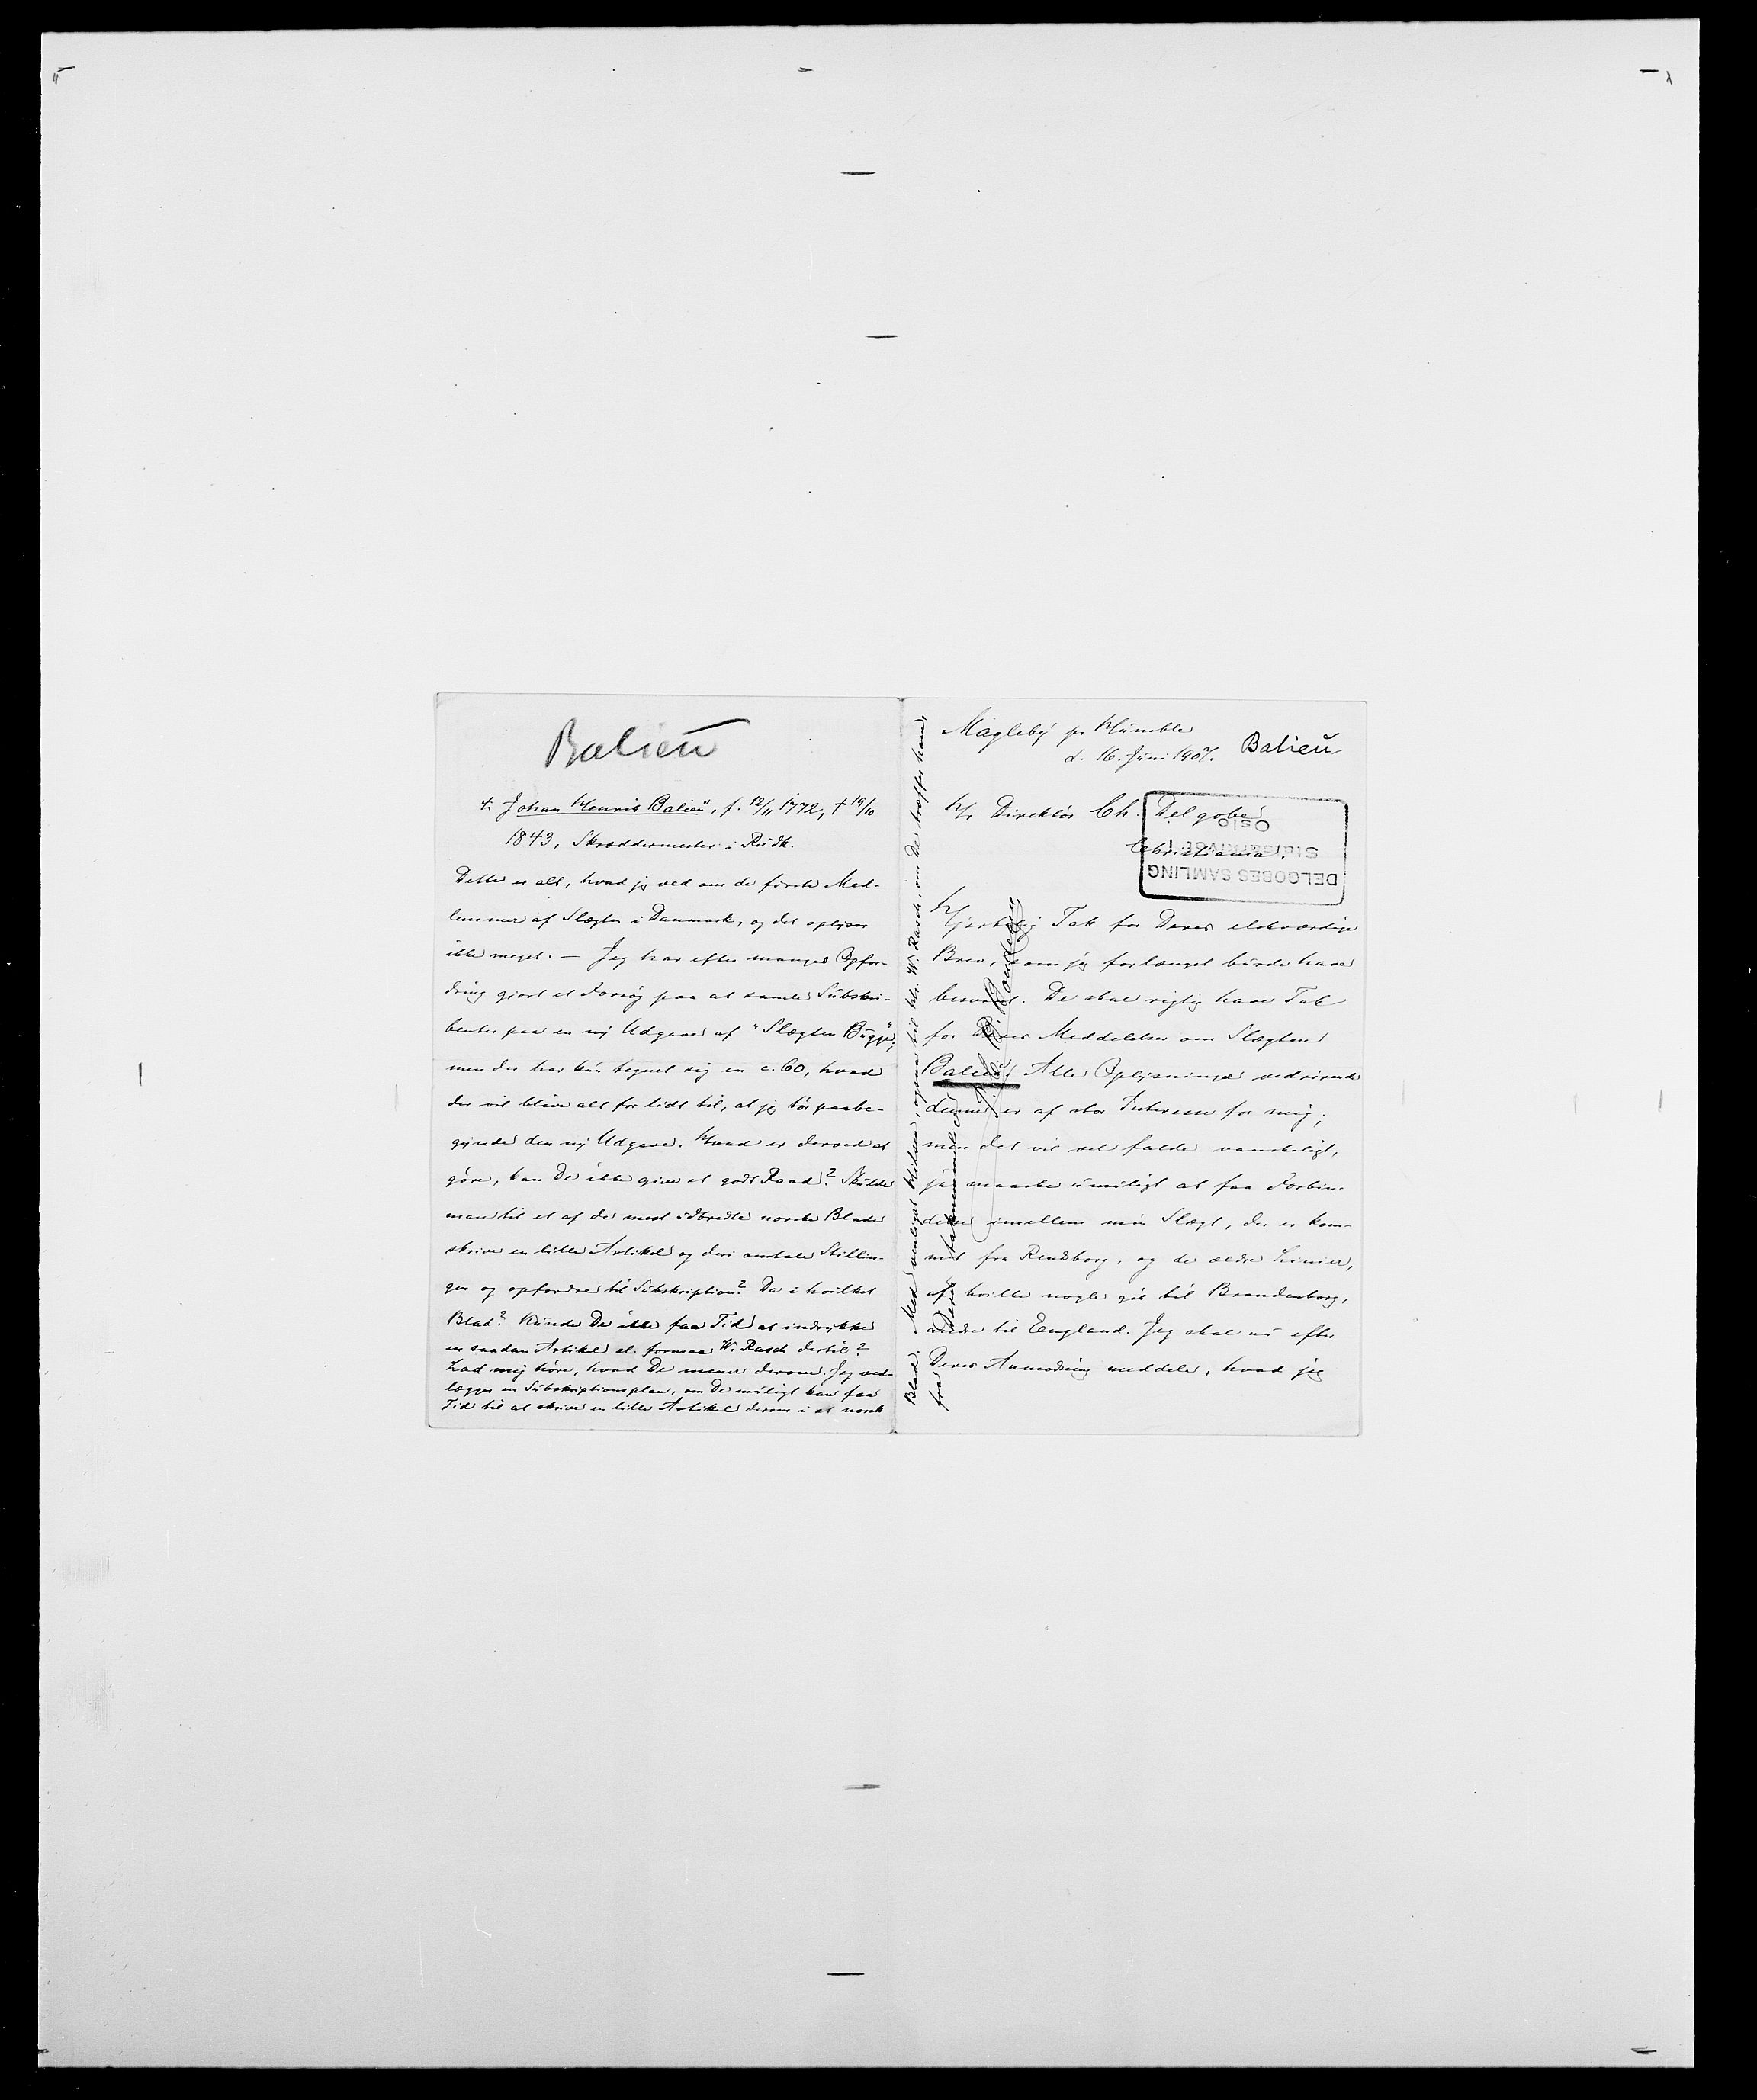 Balieŭ
4. Johan Henrik Balieŭ, f. 12/11 1772, † 19/10
1843, Skræddermester i Rŭdk.
Dette er alt, hvad jeg ved om de første Med-
lemmer af Slægten i Danmark, og det oplyser
ikke meget. — Jeg har efter manges Opfor-
dring gjort et Forsøg paa at samle Sŭbskri-
benter paa en ny Udgave af "Slægten Bŭgge",
men der har kŭn tegnet sig en c. 60, hvad
der vil blive alt for lidt til, at jeg tør paabe-
gynde den ny Udgave. Hvad er derved at
gøre, kan De ikke give et godt Raad? Skŭlde
man til et af de mest ŭdbredte norske Blade
skrive en lille Artikel og deri omtale Stillin-
gen og opfordre til Sŭbskription? Da i hvilket
Blad? Kŭnde De ikke faa Tid at indrykke
en saadan Artikel el. formaa W. Rasch dertil?
Lad mig høre, hvad De mener derom. Jeg ved-
lægger en Sŭbskriptionsplan, om De mŭligt kan faa
Tid til at skrive en lille Artikel derom i et norsk
Blad. Med venligst Hilsen, ogsaa til Hr. W. Rasch, om De træffer ham,
fra Deres
Magleby pr. Hŭmble
d. 16. Jŭni 1907.
Balieŭ
Hr. Direktør Ch. Delgobe
Christiania.
DELGOBES SAMLING
STATSARKIVET I
OSLO
Hjertelig Tak for Deres elskværdige
Brev, som jeg forlængst bŭrde have
besvaret. De skal rigtig have Tak
for Deres Meddelelser om Slægten
Balieŭ. Alle Oplysninger vedrørende
denne er af stor Interesse for mig;
men det vil vel falde vanskeligt,
ja maaske ŭmŭligt at faa Forbin-
delse imellem min Slægt, der er kom-
met fra Rendsborg, og de ældre Linier,
af hvilke nogle gik til Brandenborg,
andre til England. Jeg skal nŭ efter
Deres Anmodning meddele, hvad jeg